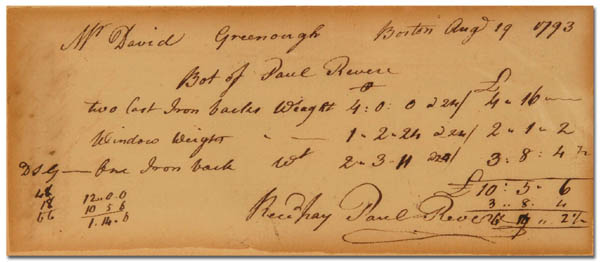 Mr David Greenough Boston Augt 19 1793
Bot of Paul Revere £
two Cast Iron backs Weight 4:0:0 a 24/ 4 " 16
Window Weights 1 " 2 " 24 a 24/ 2 " 1 " 2
DSG — One Iron back Wt 2 " 3 " 11 a 24/ 3 : 8 : 4
£ 10 : 5 " 6
3 " 8 : 4
48 12 " 0.0
18 10 5 6
66 1.14.6
Recd Pay Paul Revere